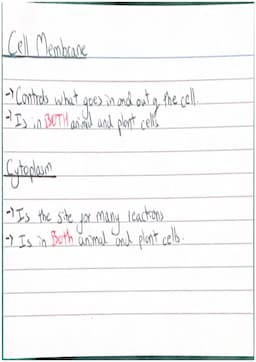 Cell Membrane
-> Controls what goes in and out of the cell.
-> Is in BOTH animal and plant cells
Cytoplasm
-> Is the site for many reactions
-> Is in Both animal and plant cells.